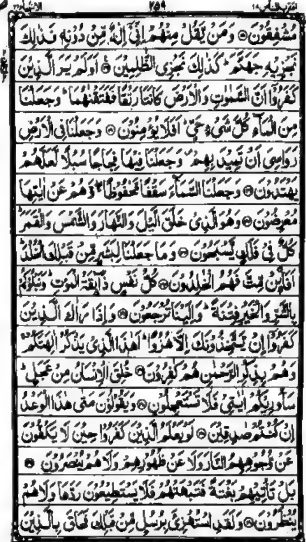 مُشْفِقُوْنَ ۝ وَمَنْ يَّقُلْ مِنْهُمْ اِنِّيْٓ اِلٰهٌ مِّنْ دُوْنِهٖ فَذٰلِكَ
نَجْزِيْهِ جَهَنَّمَ ؕ كَذٰلِكَ نَجْزِي الظّٰلِمِيْنَ ۝ اَوَلَمْ يَرَ الَّذِيْنَ
كَفَرُوْٓا اَنَّ السَّمٰوٰتِ وَالْاَرْضَ كَانَتَا رَتْقًا فَفَتَقْنٰهُمَا ؕ وَجَعَلْنَا
مِنَ الْمَآءِ كُلَّ شَيْءٍ حَيٍّ ؕ اَفَلَا يُؤْمِنُوْنَ ۝ وَجَعَلْنَا فِي الْاَرْضِ
رَوَاسِيَ اَنْ تَمِيْدَ بِهِمْ ۪ وَجَعَلْنَا فِيْهَا فِجَاجًا سُبُلًا لَّعَلَّهُمْ
يَهْتَدُوْنَ ۝ وَجَعَلْنَا السَّمَآءَ سَقْفًا مَّحْفُوْظًا ۖۚ وَّهُمْ عَنْ اٰيٰتِهَا
مُعْرِضُوْنَ ۝ وَهُوَ الَّذِيْ خَلَقَ الَّيْلَ وَالنَّهَارَ وَالشَّمْسَ وَالْقَمَرَ ؕ
كُلٌّ فِيْ فَلَكٍ يَّسْبَحُوْنَ ۝ وَمَا جَعَلْنَا لِبَشَرٍ مِّنْ قَبْلِكَ الْخُلْدَ ؕ
اَفَا۟ئِنْ مِّتَّ فَهُمُ الْخٰلِدُوْنَ ۝ كُلُّ نَفْسٍ ذَآئِقَةُ الْمَوْتِ ؕ وَنَبْلُوْكُمْ
بِالشَّرِّ وَالْخَيْرِ فِتْنَةً ؕ وَاِلَيْنَا تُرْجَعُوْنَ ۝ وَاِذَا رَاٰكَ الَّذِيْنَ
كَفَرُوْٓا اِنْ يَّتَّخِذُوْنَكَ اِلَّا هُزُوًا ؕ اَهٰذَا الَّذِيْ يَذْكُرُ اٰلِهَتَكُمْ ۚ
وَهُمْ بِذِكْرِ الرَّحْمٰنِ هُمْ كٰفِرُوْنَ ۝ خُلِقَ الْاِنْسَانُ مِنْ عَجَلٍ ؕ
سَاُورِيْكُمْ اٰيٰتِيْ فَلَا تَسْتَعْجِلُوْنِ ۝ وَيَقُوْلُوْنَ مَتٰى هٰذَا الْوَعْدُ
اِنْ كُنْتُمْ صٰدِقِيْنَ ۝ لَوْ يَعْلَمُ الَّذِيْنَ كَفَرُوْا حِيْنَ لَا يَكُفُّوْنَ
عَنْ وُّجُوْهِهِمُ النَّارَ وَلَا عَنْ ظُهُوْرِهِمْ وَلَا هُمْ يُنْصَرُوْنَ ۝
بَلْ تَاْتِيْهِمْ بَغْتَةً فَتَبْهَتُهُمْ فَلَا يَسْتَطِيْعُوْنَ رَدَّهَا وَلَا هُمْ
يُنْظَرُوْنَ ۝ وَلَقَدِ اسْتُهْزِئَ بِرُسُلٍ مِّنْ قَبْلِكَ فَحَاقَ بِالَّذِيْنَ